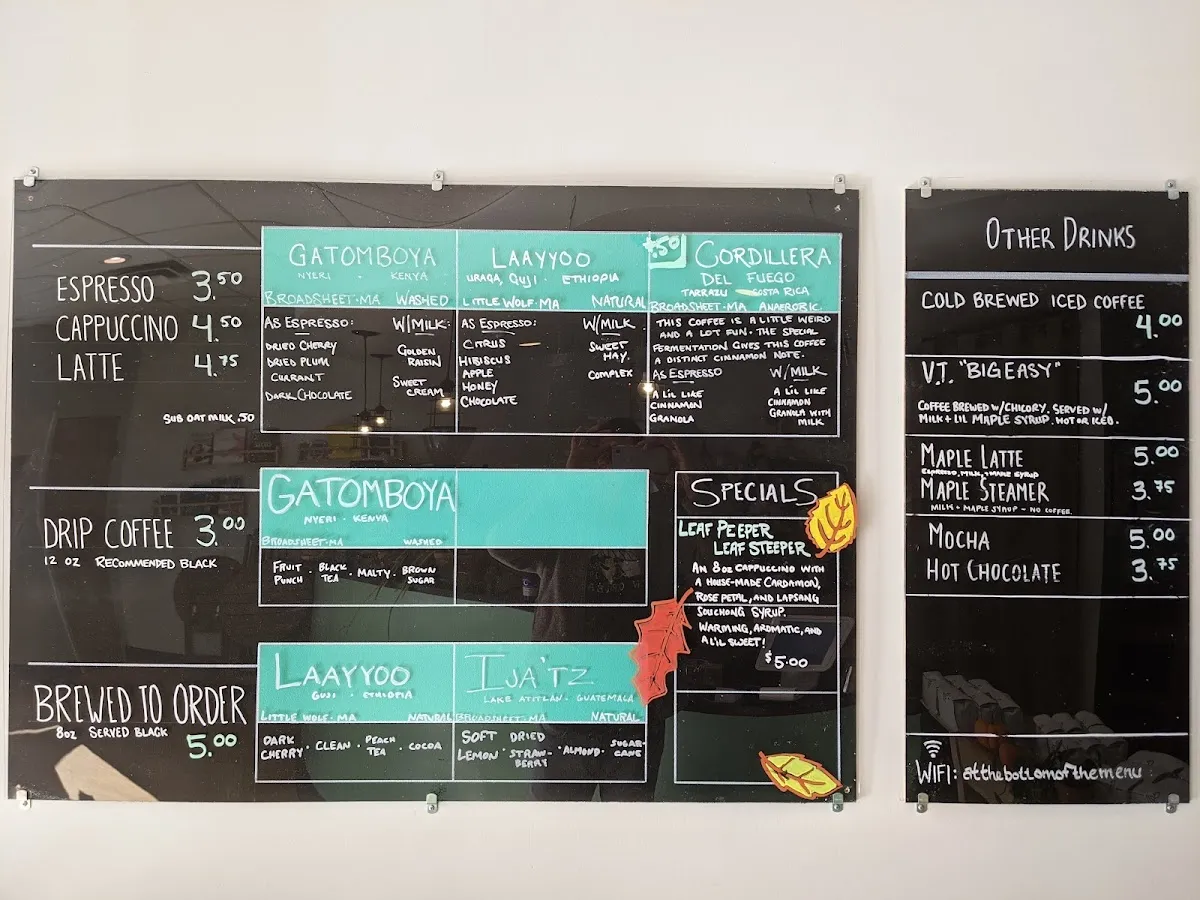 ESPRESSO 3.50
CAPPUCCINO 4.50
LATTE 4.75
SUB OAT MILK .50
GATOMBOYA
NYERI · KENYA
BROADSHEET·MA WASHED
AS ESPRESSO: W/MILK:
DRIED CHERRY
DRIED PLUM
CURRANT
DARK CHOCOLATE
GOLDEN
RAISIN
SWEET
CREAM
LAAYYOO
URAGA, GUJI · ETHIOPIA
LITTLE WOLF·MA NATURAL
AS ESPRESSO: W/MILK
CITRUS
HIBISCUS
APPLE
HONEY
CHOCOLATE
SWEET
HAY
COMPLEX
+.50 CORDILLERA
DEL FUEGO
TARRAZU COSTA RICA
BROADSHEET·MA ANAEROBIC
THIS COFFEE IS A LITTLE WEIRD
AND A LOT FUN. THE SPECIAL
FERMENTATION GIVES THIS COFFEE
A DISTINCT CINNAMON NOTE.
AS ESPRESSO W/MILK
A LIL LIKE
CINNAMON
GRANOLA
A LIL LIKE
CINNAMON
GRANOLA WITH
MILK
DRIP COFFEE 3.00
12 OZ RECOMMENDED BLACK
GATOMBOYA
NYERI · KENYA
BROADSHEET·MA WASHED
FRUIT PUNCH · BLACK TEA · MALTY · BROWN SUGAR
BREWED TO ORDER
8oz SERVED BLACK
5.00
LAAYYOO
GUJI · ETHIOPIA
LITTLE WOLF·MA NATURAL
DARK CHERRY · CLEAN · PEACH TEA · COCOA
IJA'TZ
LAKE ATITLAN · GUATEMALA
BROADSHEET·MA NATURAL
SOFT LEMON · DRIED STRAWBERRY · ALMOND · SUGARCANE
SPECIALS
LEAF PEEPER
LEAF STEEPER
AN 8oz CAPPUCCINO WITH
A HOUSE-MADE CARDAMON,
ROSE PETAL, AND LAPSANG
SOUCHONG SYRUP.
WARMING, AROMATIC, AND
A LIL SWEET!
$5.00
OTHER DRINKS
COLD BREWED ICED COFFEE
4.00
V.T. "BIG EASY"
5.00
COFFEE BREWED W/CHICORY. SERVED W/
MILK + LIL MAPLE SYRUP. HOT OR ICED.
MAPLE LATTE 5.00
ESPRESSO, MILK, + MAPLE SYRUP
MAPLE STEAMER 3.75
MILK + MAPLE SYRUP - NO COFFEE.
MOCHA 5.00
HOT CHOCOLATE 3.75
WIFI: atthebottomofthemenu